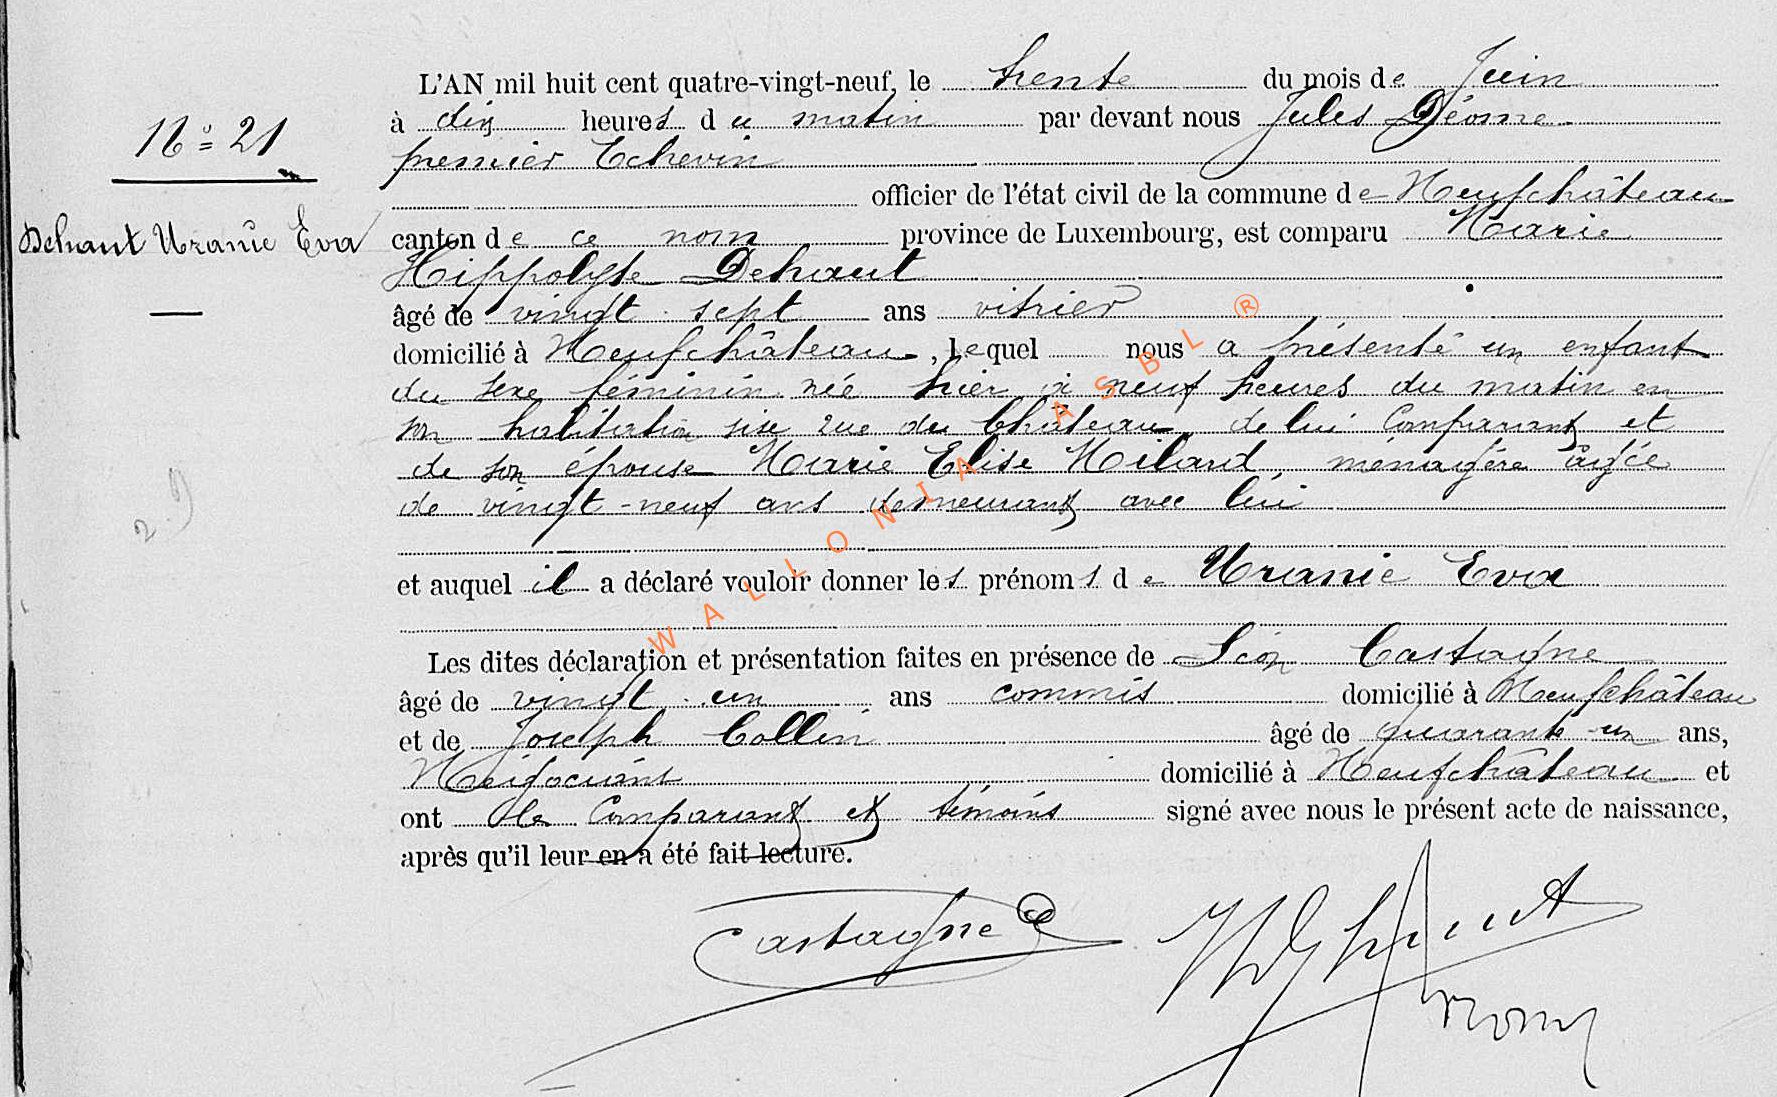 L'AN mil huit cent quatre-vingt-neuf, le trente du mois de Juin
à dix heures du matin par devant nous Jules Déome
premier Echevin
officier de l'état civil de la commune de Neufchâteau
N° 21
Dehant Uranie Eva
canton de ce nom province de Luxembourg, est comparu Marie
Hippolyte Dehant
âgé de vingt sept ans vitrier
domicilié à Neufchâteau, lequel nous a présenté un enfant
du sexe féminin née hier à neuf heures du matin en
son habitation sise rue du Château, de lui Comparant et
de son épouse Marie Elise Milard, ménagère âgée
de vingt-neuf ans demeurant avec lui
29
et auquel il a déclaré vouloir donner les prénoms de Uranie Eva
Les dites déclaration et présentation faites en présence de Léon Castagne
âgé de vingt un ans commis domicilié à Neufchâteau
et de Joseph Collin âgé de quarante-un ans,
Négociant domicilié à Neufchâteau et
ont les Comparant et témoins signé avec nous le présent acte de naissance,
après qu'il leur en a été fait lecture.
Castagne
WALLONIA ASBL ®